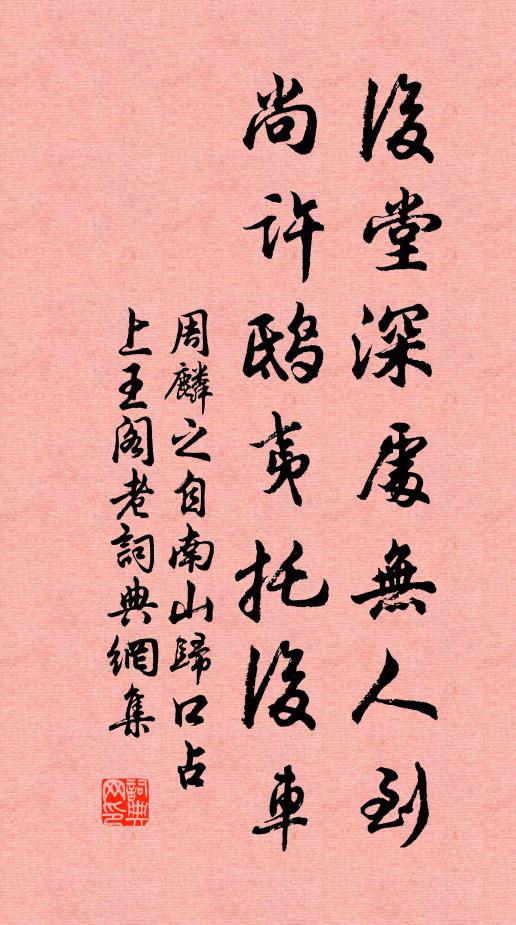 後堂深處無人到
尚許鴟夷托後車
周麟之自南山歸口占
上王閣老詞典網集
詞典网印